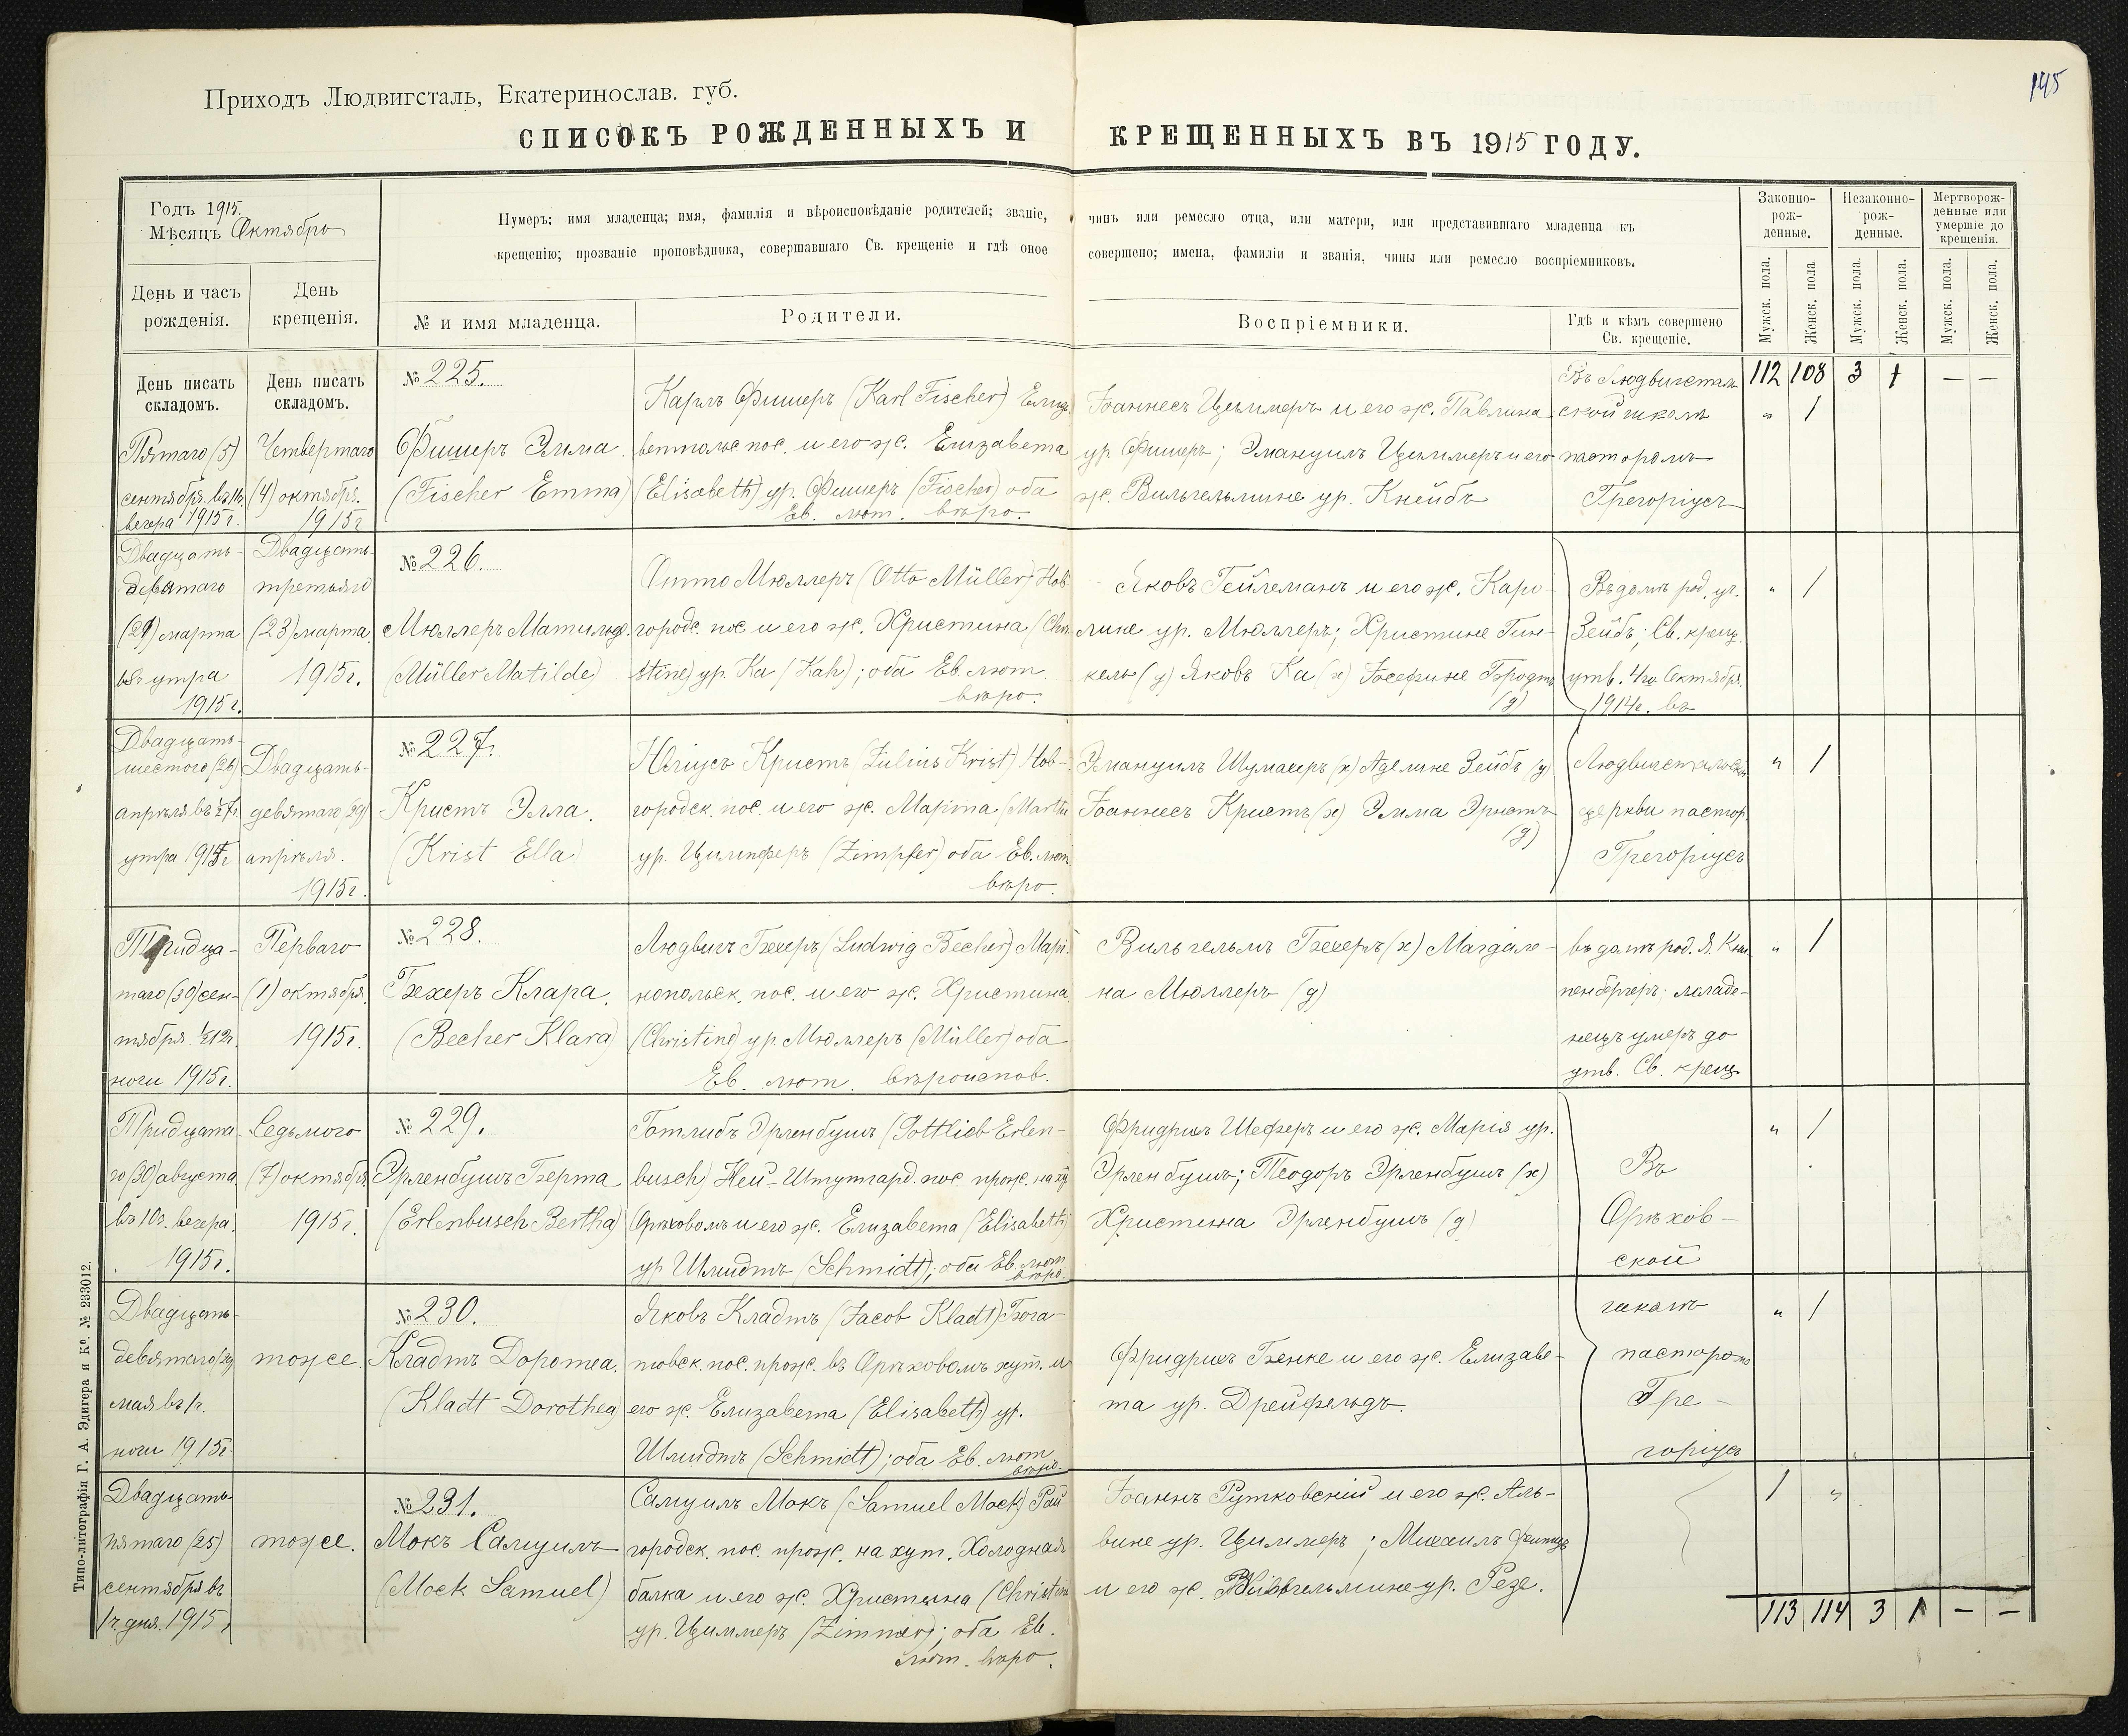 145
Приходъ Людвигсталь, Екатеринослав. губ.
СПИСОКЪ РОЖДЕННЫХЪ И КРЕЩЕННЫХЪ ВЪ 1915 ГОДУ.
Годъ 1915.
Мѣсяцъ Октябрь
Нумеръ; имя младенца; имя, фамилія и вѣроисповѣданіе родителей; званіе, чинъ или ремесло отца, или матери, или представившаго младенца къ
крещенію; прозваніе проповѣдника, совершавшаго Св. крещеніе и гдѣ оное совершено; имена, фамиліи и званія, чины или ремесло воспріемниковъ.
Законно-
рож-
денные.
Незаконно-
рож-
денные.
Мертворож-
денные или
умершіе до
крещенія.
День и часъ
рожденія.
День
крещенія.
№ и имя младенца.
Родители.
Воспріемники.
Гдѣ и кѣмъ совершено
Св. крещеніе.
Мужск. пола.
Женск. пола
Мужск. пола.
Женск. пола.
Мужск. пола.
Женск. пола.
День писать
складомъ.
День писать
складомъ.
112 108 3 1 — —
Пятаго (5)
сентября
вечера 1915 г.
Четвертаго
(4) октября.
1915 г.
№ 225.
Фишеръ Эмма.
(Fischer Emma)
Карлъ Фишеръ (Karl Fischer) Елиза
ветпольс. пос. и его ж. Елизавета
(Elisabeth) ур. Фишеръ (Fischer) оба
Ев. лют. вѣро.
Іоаннесъ Циммеръ и его ж. Павлина
ур. Фишеръ; Эмануилъ Циммеръ и его
ж. Вильгельмине ур. Кнейбъ
Въ Людвигсталь
ской школѣ
пасторомъ
Грегоріусъ
" 1
Двадцать-
девятаго
(29) марта
утра
1915 г.
Двадцать-
третьяго
(23) марта.
1915 г.
№ 226.
Мюллеръ Матильда.
(Müller Matilde)
Отто Мюллеръ (Otto Müller) Нов-
городс. пос. и его ж. Христина (Chri
stine) ур. Ка (Kah); оба Ев. лют.
вѣро.
Яковъ Гейлеманъ и его ж. Каро-
лине ур. Мюллеръ; Христине Гин-
кель (д) Яковъ Ка (х) Іосефине Бродтъ
(д)
Въ домѣ род. уч.
Зейбъ; Св. крещ.
утв. 4го Октября
1914г. въ
" 1
Двадцать-
шестого (26)
апрѣля
утра 1915 г
Двадцать-
девятаго (29)
апрѣля.
1915 г.
№ 227.
Кристъ Элла.
(Krist Ella)
Юліусъ Кристъ (Julius Krist) Нов-
городск. пос. и его ж. Марта (Martha
ур. Цимпферъ (Zimpfer) оба Ев. лют.
вѣро.
Эмануилъ Шумахеръ (х) Аделине Зейбъ (д)
Іоаннесъ Кристъ (х) Эмма Эрнстъ
(д)
Людвигстальской
церкви пастор.
Грегоріусъ
" 1
Тридца-
таго (30) сен-
тября ½ 12 ч.
ночи 1915 г.
Перваго
(1) октября.
1915 г.
№ 228.
Бехеръ Клара.
(Becher Klara)
Людвигъ Бехеръ (Ludwig Becher) Марі-
нопольск. пос. и его ж. Христина
(Christine) ур. Мюллеръ (Müller) оба
Ев. лют. вѣроиспов.
Вильгельмъ Бехеръ (х) Магдале-
на Мюллеръ (д)
въ домѣ род. Я. Кни
пенбергеръ; младе-
нецъ умеръ до
утв. Св. крещ.
" 1
Тридцата
го (30) августа
въ 10 ч. вечера.
1915 г.
Седьмого
(7) октября
1915 г.
№ 229.
Эрленбушъ Берта
(Erlenbusch Bertha)
Готлибъ Эрленбушъ (Gottlieb Erlen-
busch) Ней-Штутгард. пос. прож. на ху
Орѣховомъ и его ж. Елизавета (Elisabeth)
ур Шмидтъ (Schmidt); оба Ев. лют.
вѣро.
Фридрихъ Шеферъ и его ж. Марія ур.
Эрленбушъ; Теодоръ Эрленбушъ (х)
Христина Эрленбушъ (д)
Въ
Орѣхов-
ской
" 1
Двадцать-
девятаго (29)
мая въ 1 ч.
ночи 1915 г.
тоже.
№ 230.
Кладтъ Доротеа.
(Kladt Dorothea)
Яковъ Кладтъ (Jacob Kladt) Бога-
товск. пос. прож. въ Орѣховомъ хут. и
его ж. Елизавета (Elisabeth) ур.
Шмидтъ (Schmidt); оба Ев. лют.
вѣро.
Фридрихъ Бенке и его ж. Елизаве-
та ур. Дрейфельдъ.
школѣ
пасторомъ
Гре-
горіусъ
" 1
Двадцать-
пятаго (25)
сентября въ
1 ч. дня. 1915 г.
тоже.
№ 231.
Мокъ Самуилъ
(Mock Samuel)
Самуилъ Мокъ (Samuel Mock) Рай
городск. пос. прож. на хут. Холодная
балка и его ж. Христина (Christine
ур. Циммеръ (Zimmer); оба Ев.
лют. вѣро.
Іоаннъ Рутковскій и его ж. Аль-
вине ур. Циммеръ; Михаилъ
и его ж. Вильгельмине ур. Резе.
1 "
113 114 3 1 — —
Типо-литографія Г. А. Эдигера и Ко. № 233012.